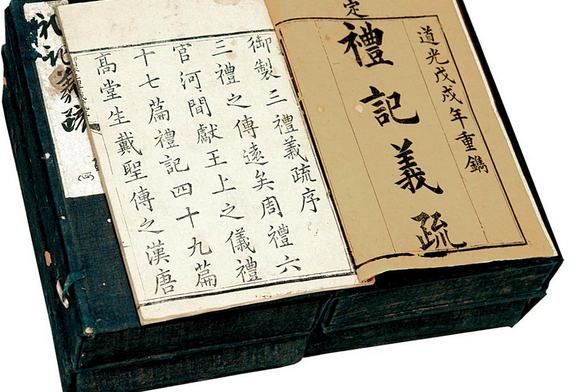 道光戊戌年重鐫
定
禮記義疏
御製三禮義疏序
三禮之傳遠矣周禮六
官河間獻王上之儀禮
十七篇禮記四十九篇
髙堂生戴聖傳之漢唐
礼記義疏